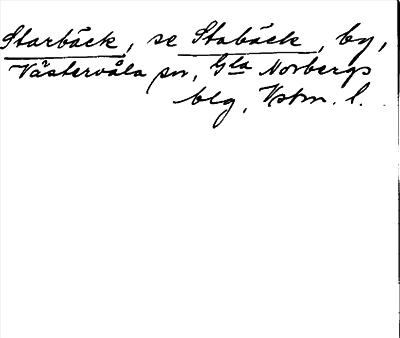 Starbäck, se Stabäck, by,
Västervåla sn, Gla Norbergs
blg, Vstm. l.